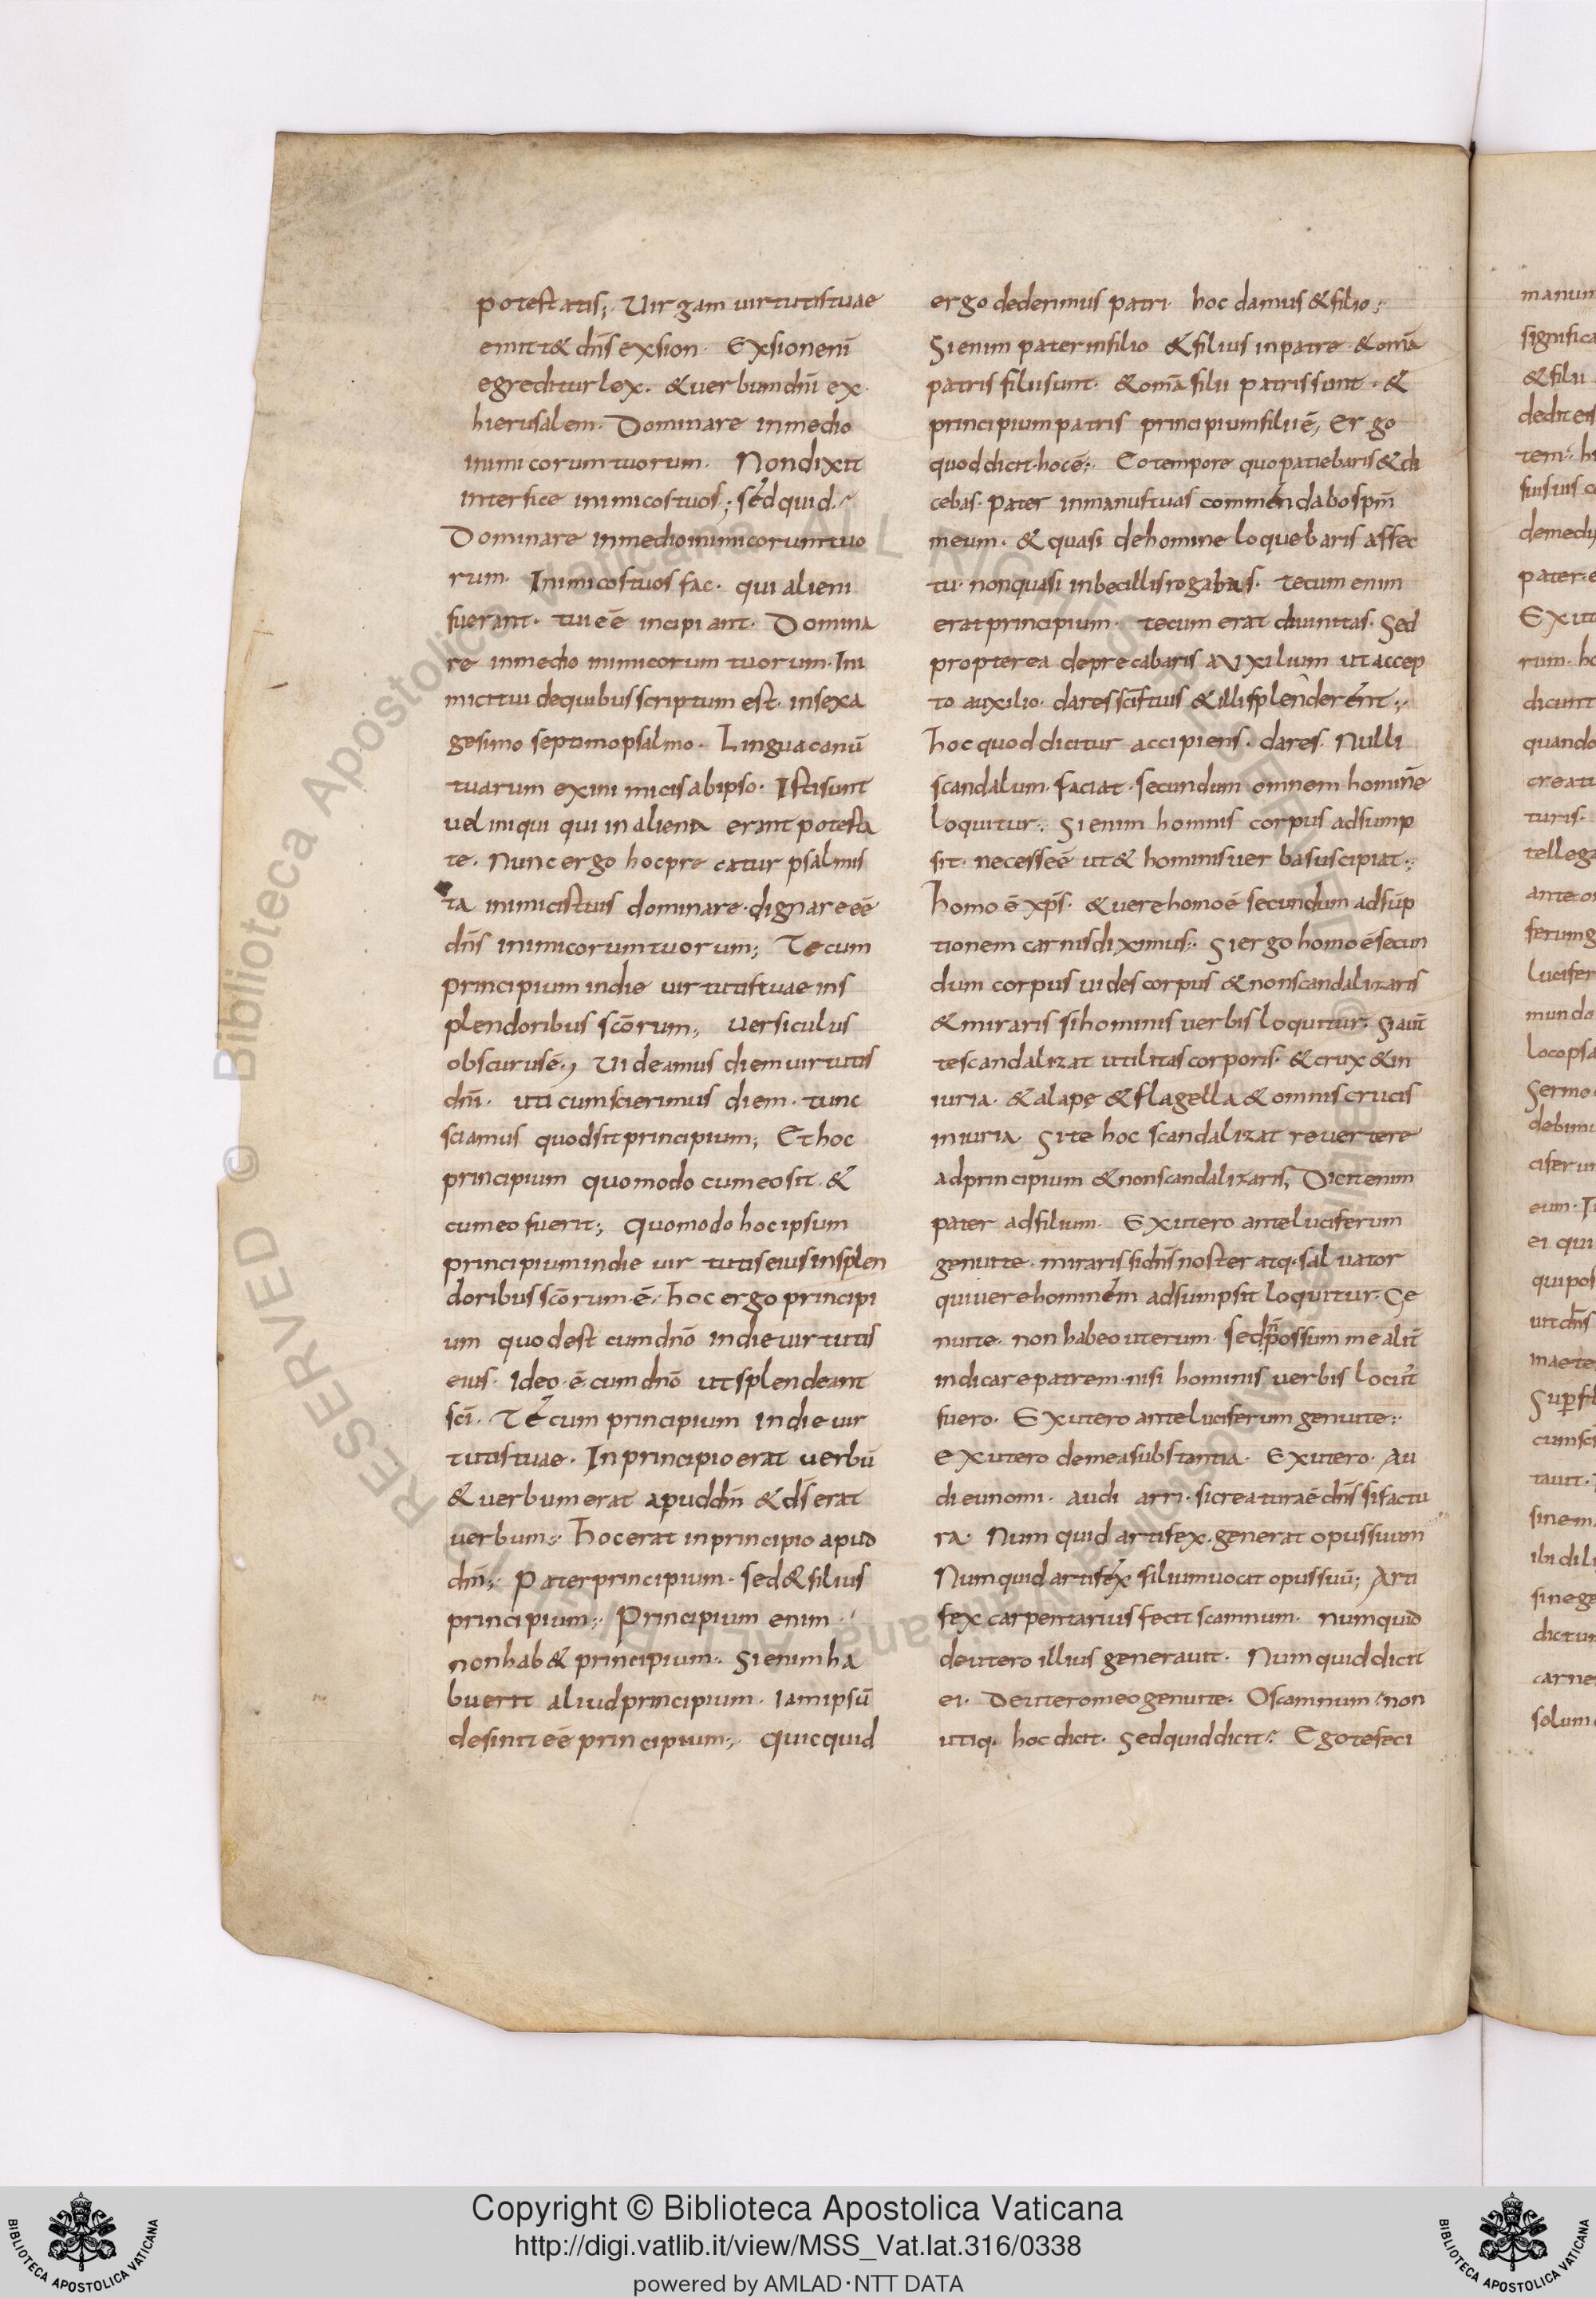 potestatis; Uirgam uirtutis tuae
emitt& dn̄s ex sion. Ex sion enī
egreditur lex. & uerbum dn̄i ex
hierusalem. Dominare in medio
inimicorum tuorum. Non dixit
interfice inimicos tuos; sed quid.
Dominare in medio inimicorum tuo
rum. Inimicos tuos fac. qui alieni
fuerant. tui eē incipiant. Domina
re in medio inimicorum tuorum. Ini
mici tui de quibus scriptum est. in sexa
gesimo septimo psalmo. Lingua canū
tuarum ex inimicis ab ipso. Isti sunt
uel iniqui qui in aliena erant potesta
te. Nunc ergo hoc precatur psalmis
ta inimicis tuis dominare. dignare eē
dn̄s inimicorum tuorum; Tecum
principium in die uirtutis tuae in s
plendoribus scōrum; Uersiculus
obscurus ē; Uideamus diem uirtutis
dn̄i. uti cum scierimus diem. tunc
sciamus quod sit principium; Et hoc
principium quomodo cum eo sit. &
cum eo fuerit; Quomodo hoc ipsum
principium in die uirtutis eius in splen
doribus scōrum. ē. Hoc ergo principi
um quod est cum dn̄o in die uirtutis
eius. Ideo. ē. cum dn̄o ut splendeant
scī. Tecum principium in die uir
tutis tuae. In principio erat uerbū
& uerbum erat apud dm̄ & ds̄ erat
uerbum; Hoc erat in principio apud
dm̄; Pater principium. sed & filius
principium; Principium enim
non hab& principium. Si enim ha
buerit aliud principium. Iam ipsū
desinit eē principium; Quicquid
ergo dederimus patri. hoc damus & filio;
Si enim pater in filio & filius in patre. & om̄a
patris filii sunt. & om̄a filii patris sunt. &
principium patris principium filii ē, Ergo
quod dicit. hoc ē; Eo tempore quo patiebaris & di
cebas. Pater in manus tuas commendabo sp̄m
meum. & quasi de homine loquebaris affec
tu. non quasi inbecillis rogabas. Tecum enim
erat principium. Tecum erat diuinitas. Sed
propterea deprecabaris auxilium ut accep
to auxilio. dares scīs tuis & illi splenderent;
Hoc quod dicitur accipiens. dares. Nulli
scandalum. faciat. secundum omnem hominē
loquitur. Si enim hominis corpus adsump
sit. necesse ē ut & hominis uerba suscipiat;
Homo ē xp̄s. & uere homo ē secundum adsūp
tionem carnis diximus. Si ergo homo ē secun
dum corpus uides corpus & non scandalizaris
& miraris si hominis uerbis loquitur; Si aut̄
te scandalizat utilitas corporis. & crux & in
iuria. & alapę & flagella & omnis crucis
iniuria. Si te hoc scandalizat reuertere
ad principium & non scandalizaris; Dicit enim
pater ad filium. Ex utero ante luciferum
genui te. miraris si dn̄s noster atq. saluator
qui uere hominem adsumpsit loquitur. Ge
nui te. non habeo uterum. Sed n̄ possum me alit̄
indicare patrem. nisi hominis uerbis locut᷒
fuero. Ex utero ante luciferum genui te;
Ex utero de mea substantia. Ex utero. Au
di eunomi. audi arri. si creatura ē dn̄s si factu
ra. Num quid artifex. generat opus suum
Numquid artifex filium uocat opus suū; Arti
fex carpentarius fecit scamnum. numquid
de utero illius generauit. Numquid dicit
ei. De utero meo genui te. O scamnum non
utiq. hoc dicit. Sed quid dicit. Ego te feci
Copyright © Biblioteca Apostolica Vaticana
http://digi.vatlib.it/view/MSS_Vat.lat.316/0338
powered by AMLAD·NTT DATA